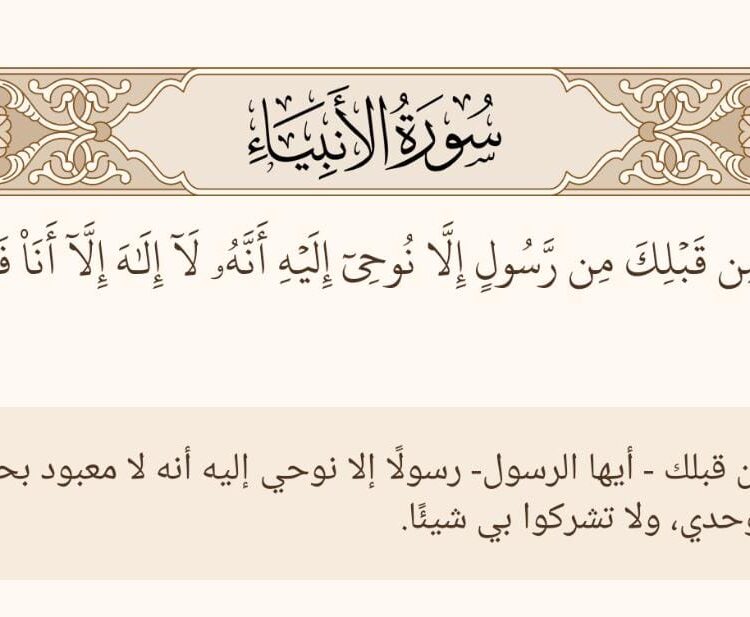 سُورَةُ الأَنبِيَاءِ
قَبْلِكَ مِن رَّسُولٍ إِلَّا نُوحِىٓ إِلَيْهِ أَنَّهُۥ لَآ إِلَـٰهَ إِلَّآ أَنَا۠
قبلك - أيها الرسول- رسولًا إلا نوحي إليه أنه لا معبود
وحدي، ولا تشركوا بي شيئًا.